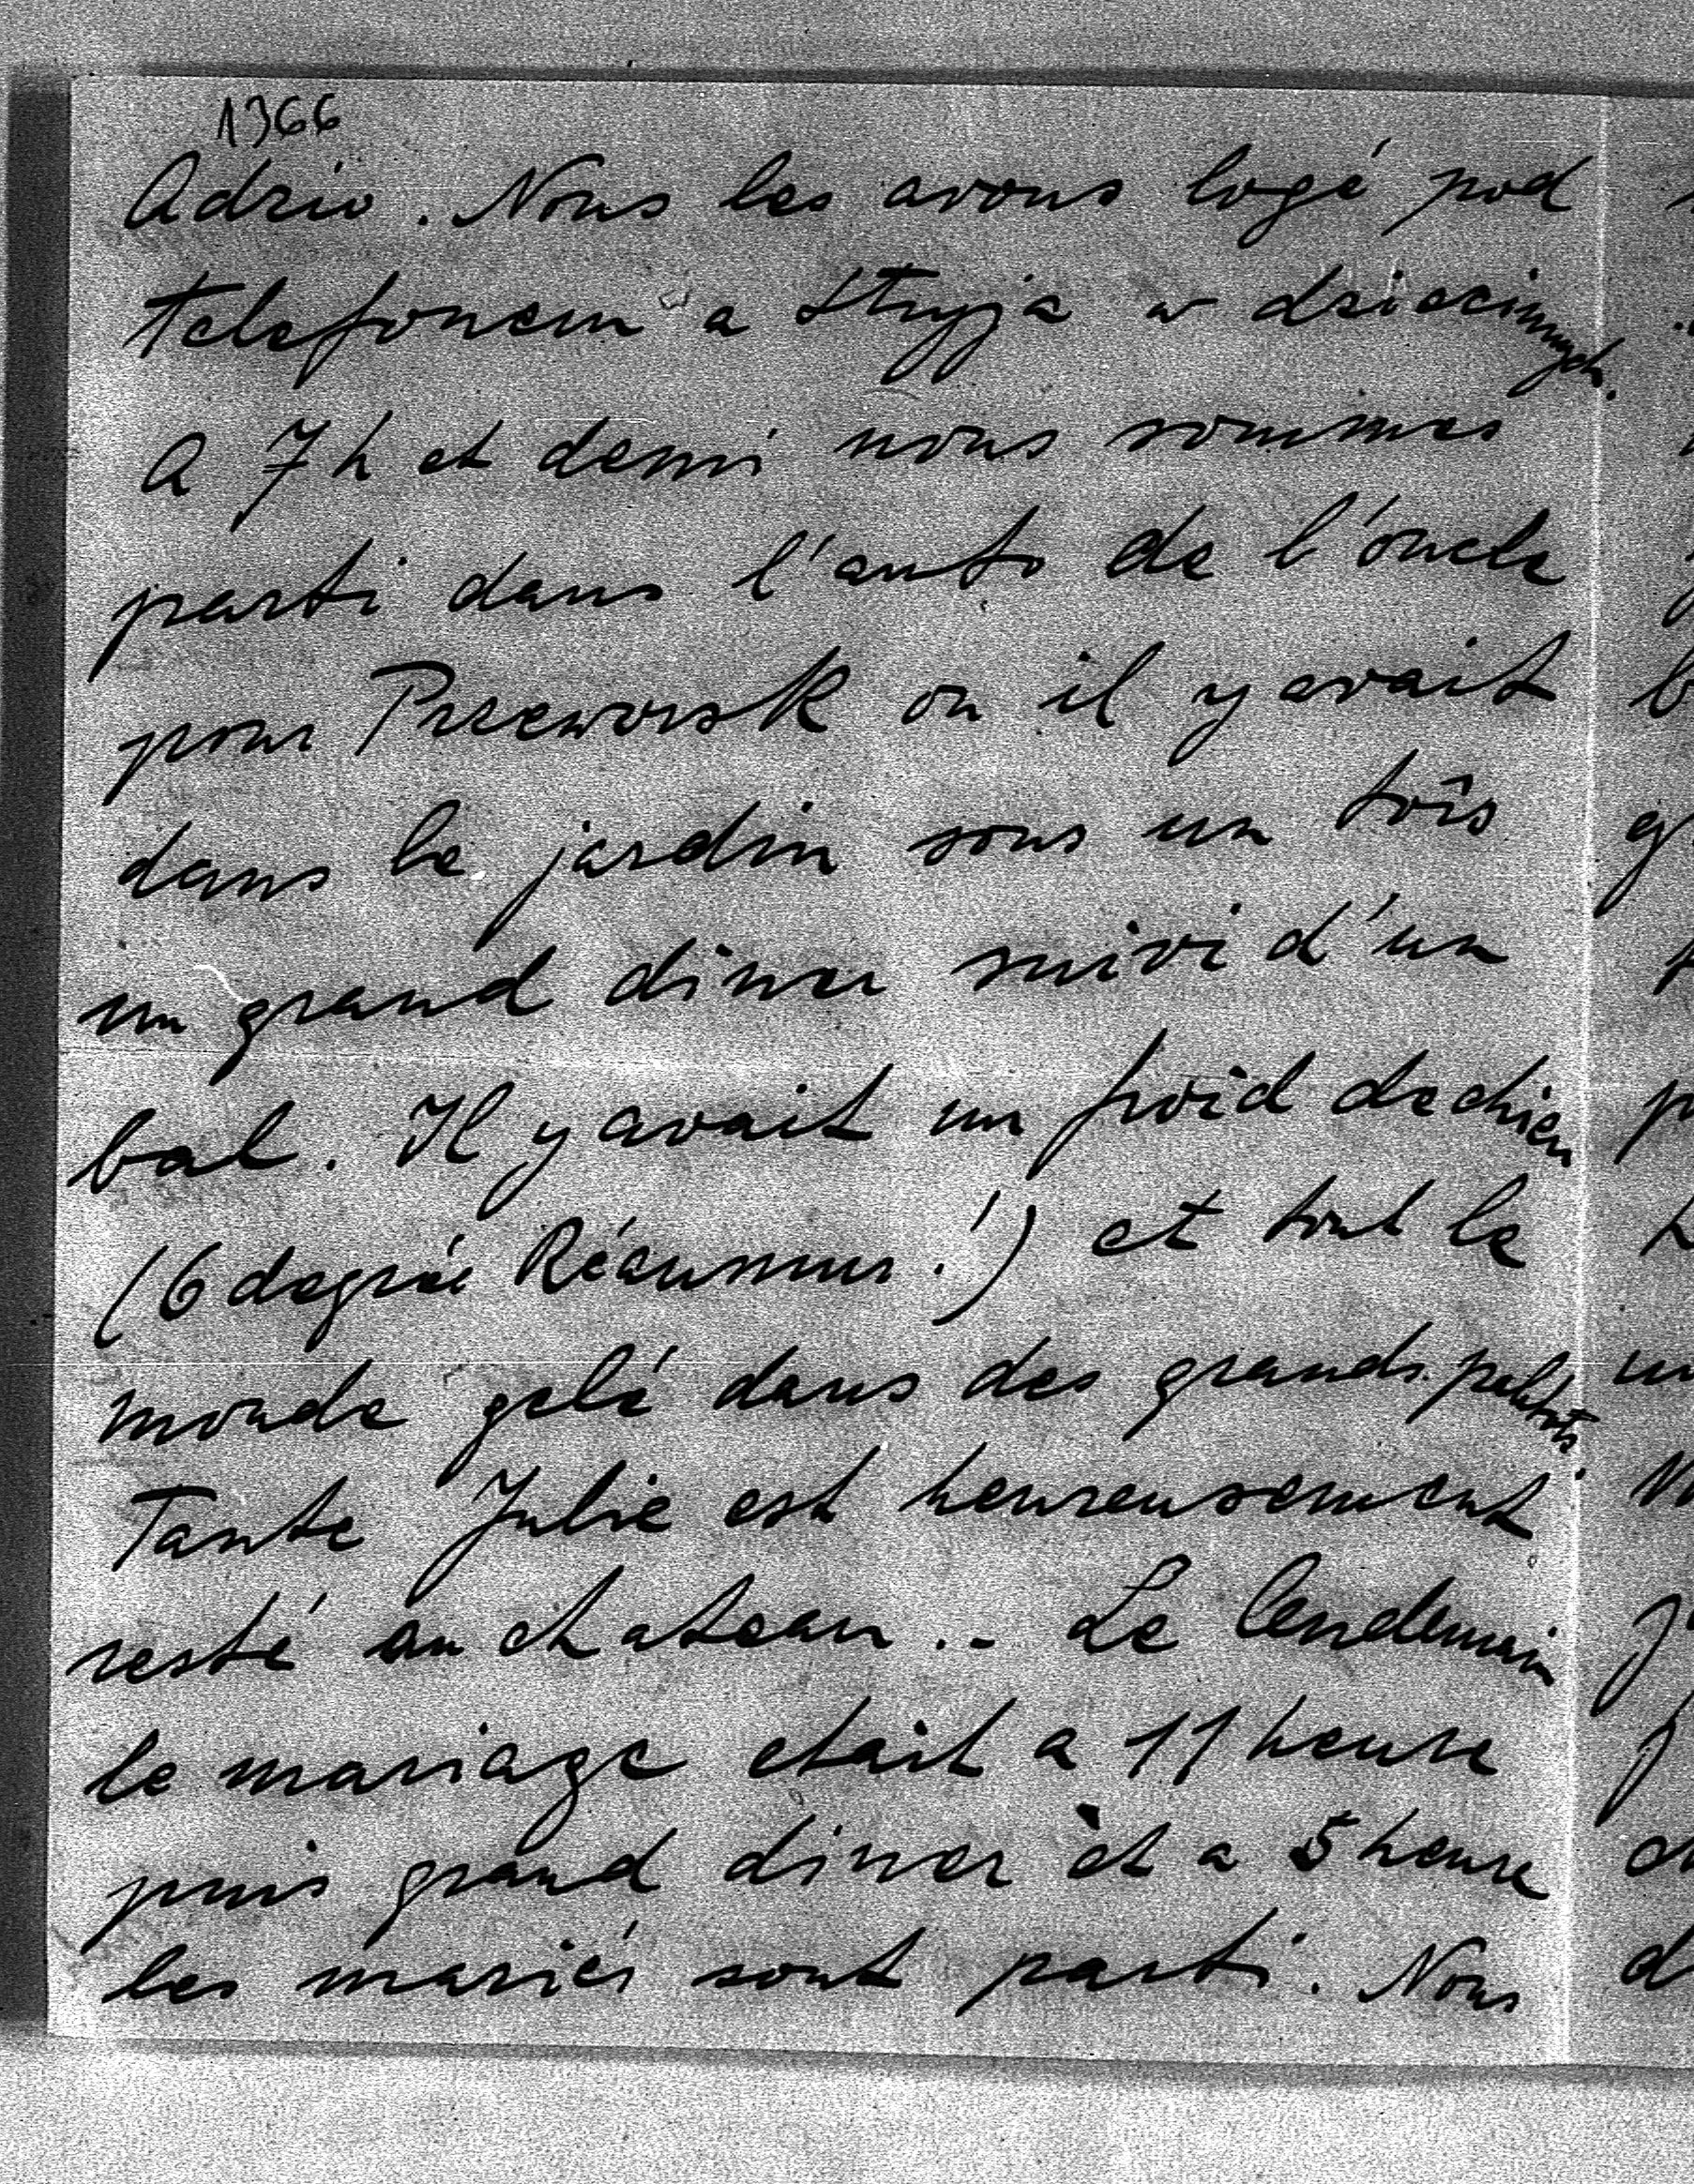 1366
Adzio. Nous les avons logé pod
telefonem a Stryja w dziecinnych.
A 7 h et demi nous sommes
parti dans l'auto de l'óncle
pour Przeworsk ou il y avait
dans le jardin sous un toîs
un grand diner suivi d'un
bal. Il y avait un froid de chien
(6 degrée Réaumur!) et tout le
monde gelé dans des grands paletots.
Tante Julie est heureusement
resté au chateau.. Le lendemain
le mariage etait a 11 heure
puis grand diner èt a 5 heure
les mariés sont parti. Nous